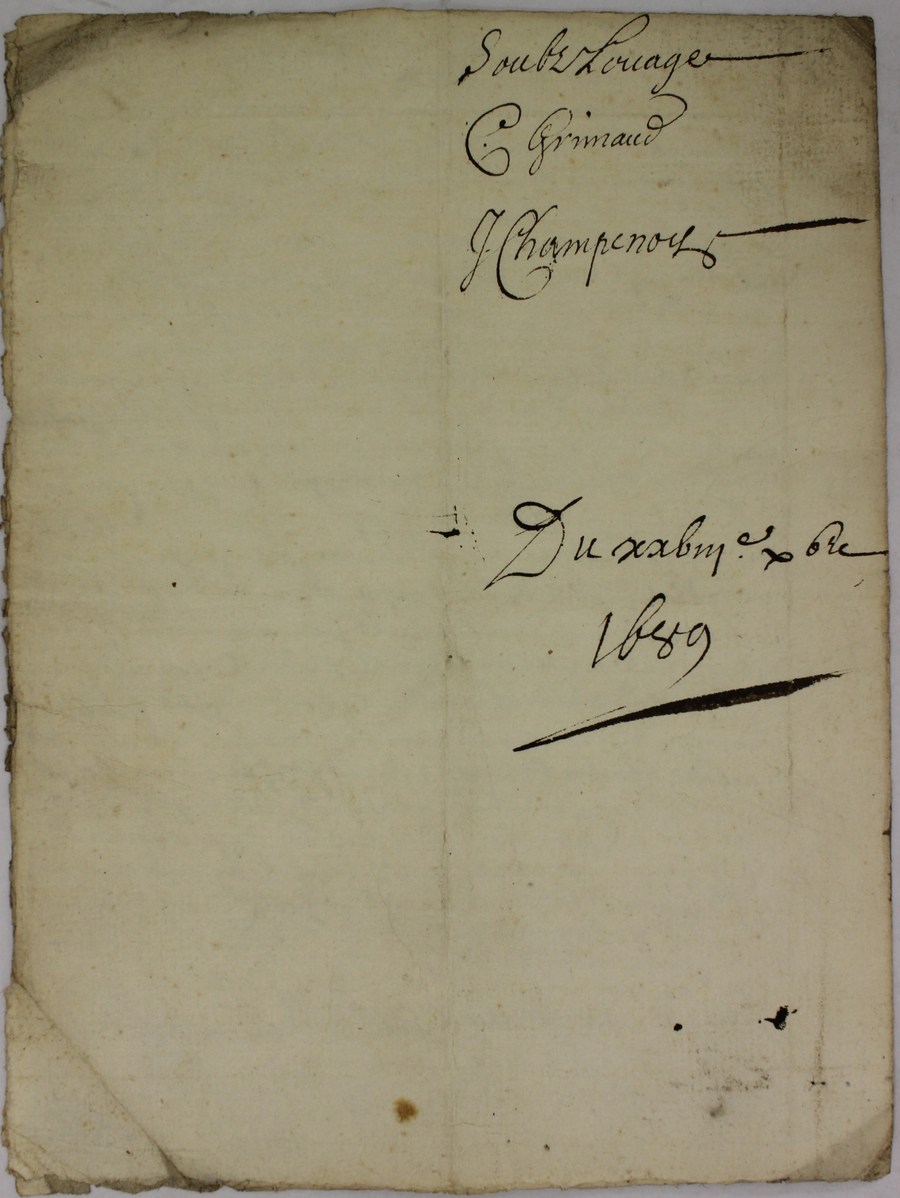 Soubz Louage
C. Grimaud
J Champenois
Du xxbme xbre
1689